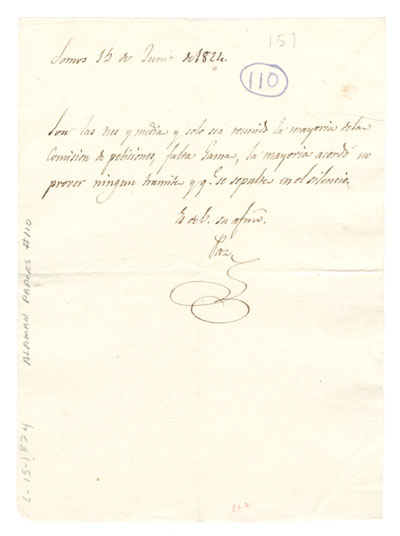 157
Somos 15 de Junio de 1824.
110
Son las tres y media y solo se a reunido la mayoria de la
Comision de peticiones, falta Gama, la mayoria acordó no
prover ningun tramite y q.e se sepulte en el silencio.
Es de V. su afmo.
Paz
ALAMAN PAPERS #110
6-15-1824
122